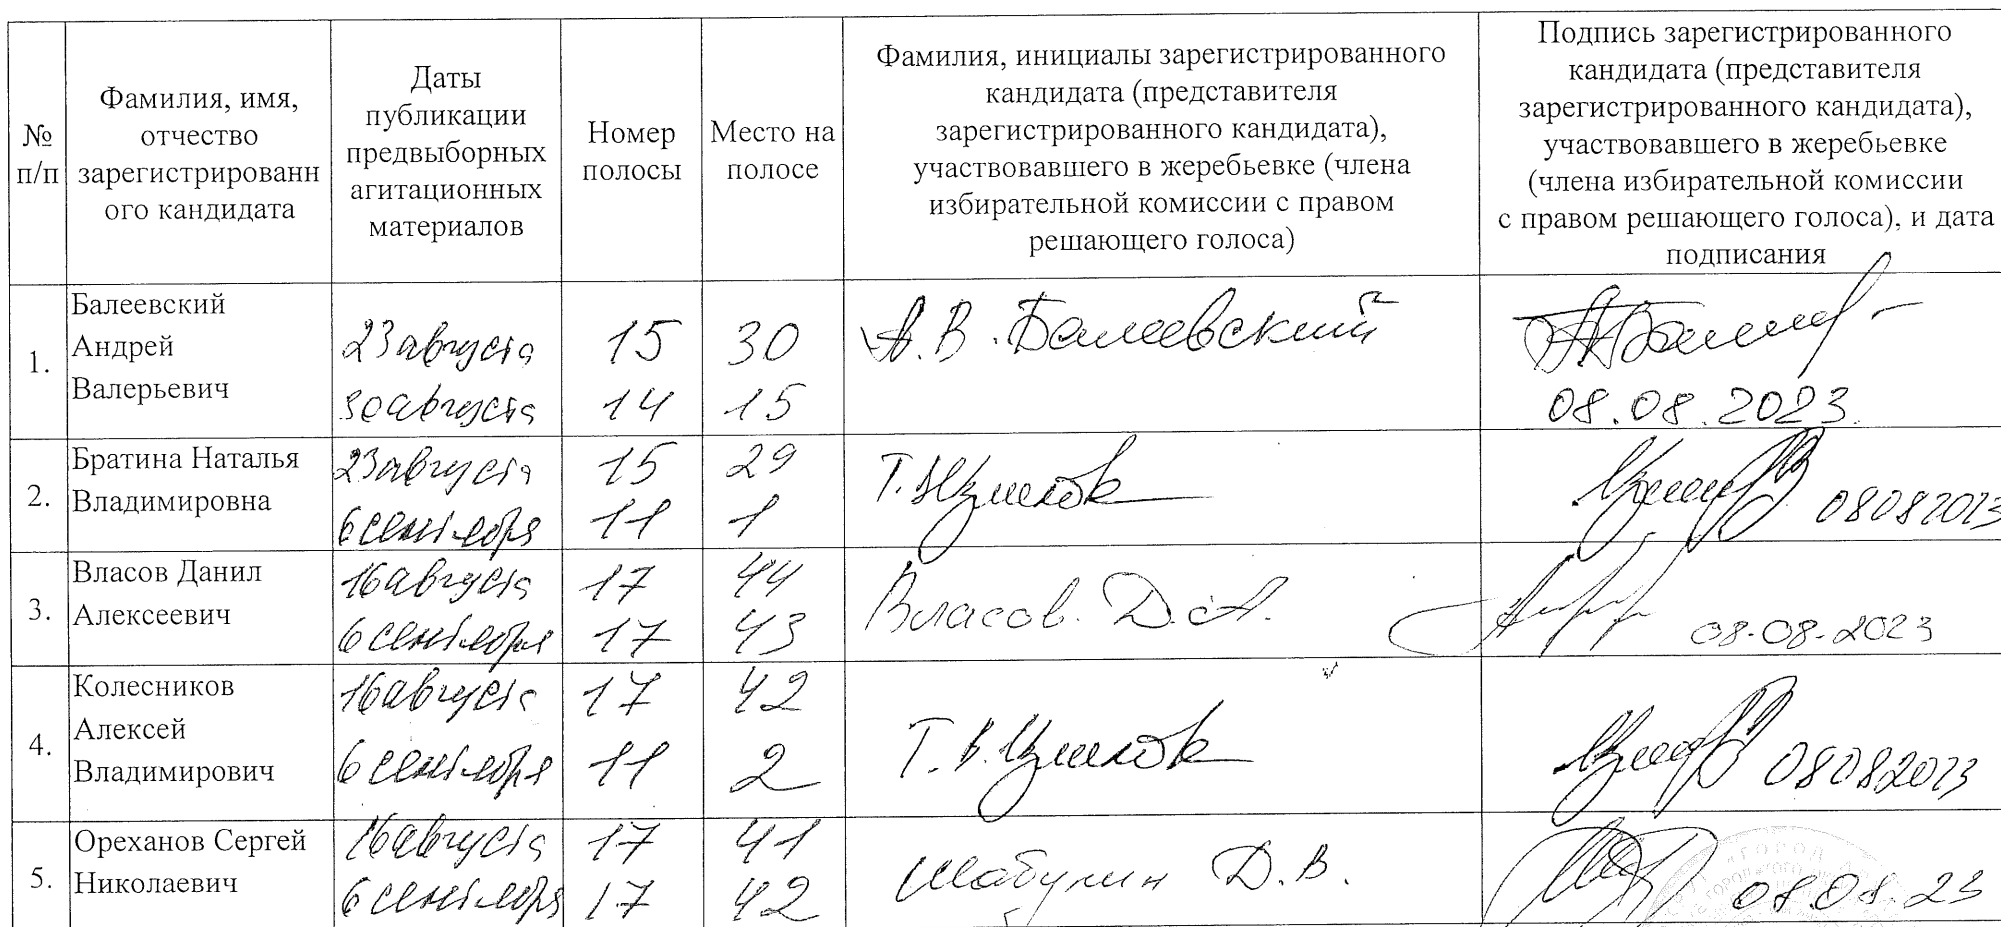 №
п/п
Фамилия, имя,
отчество
зарегистрированн
ого кандидата
Даты
публикации
предвыборных
агитационных
материалов
Номер
полосы
Место на
полосе
Фамилия, инициалы зарегистрированного
кандидата (представителя
зарегистрированного кандидата),
участвовавшего в жеребьевке (члена
избирательной комиссии с правом
решающего голоса)
Подпись зарегистрированного
кандидата (представителя
зарегистрированного кандидата),
участвовавшего в жеребьевке
(члена избирательной комиссии
с правом решающего голоса), и дата
подписания
1.
Балеевский
Андрей
Валерьевич
23 августа 15 30
30 августа 14 15
А.В. Балеевский
08.08.2023.
2.
Братина Наталья
Владимировна
23 августа 15 29
6 сентября 11 1
Т.
08082023
3.
Власов Данил
Алексеевич
16 августа 17 44
6 сентября 17 43
Власов. Д.А.
08-08-2023
4.
Колесников
Алексей
Владимирович
16 августа 17 42
6 сентября 11 2
Т.В.
08082023
5.
Ореханов Сергей
Николаевич
16 августа 17 41
6 сентября 17 42
Шабунин Д.В.
08.08.23